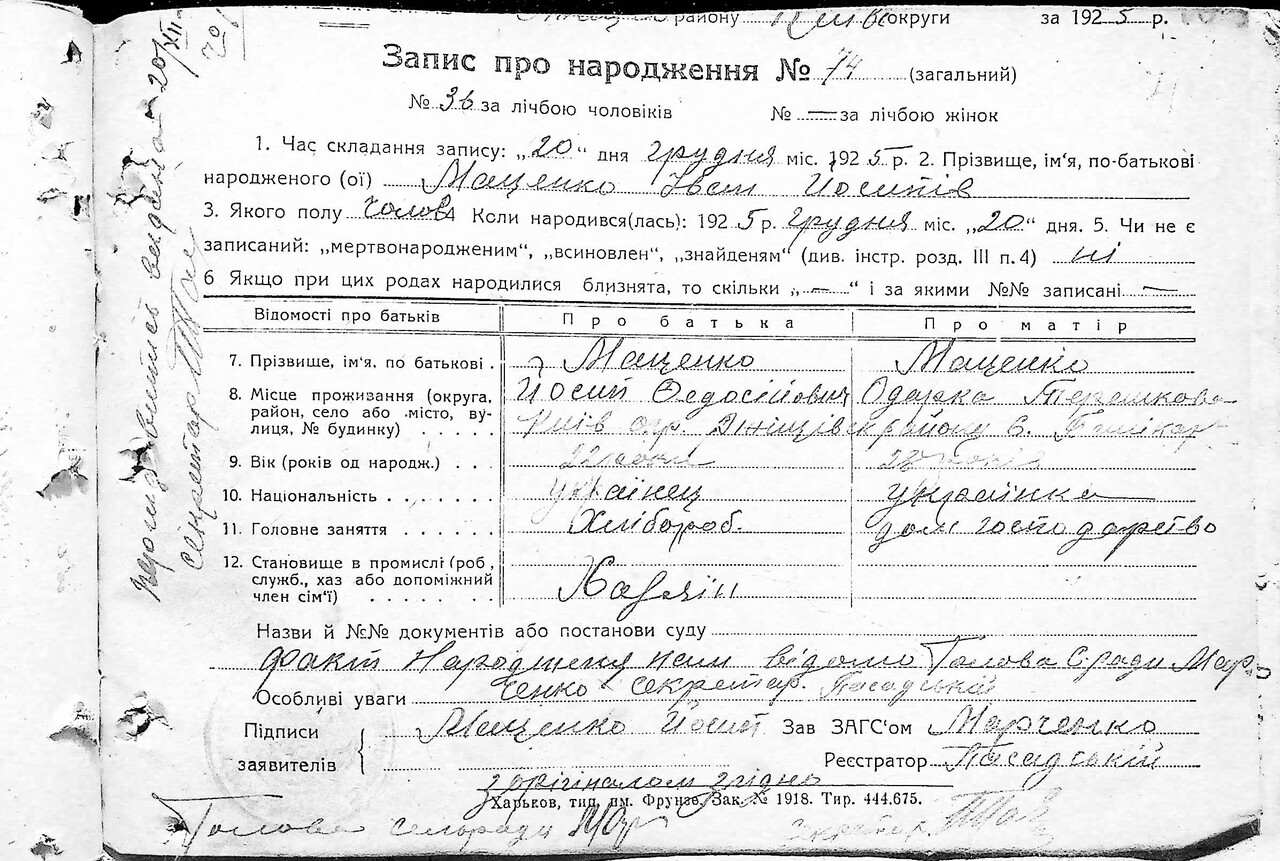 району Київ округи за 1925 р.
Запис про народження № 74 (загальний)
№ 36 за лічбою чоловіків № — за лічбою жінок
1. Час складання запису: „20“ дня грудня міс. 1925 р. 2. Прізвище, ім'я, по-батькові
народженого (ої) Маценко Іван Йосипів
3. Якого полу чолов Коли народився(лась): 1925 р. грудня міс. „20“ дня. 5. Чи не є
записаний: „мертвонародженим“, „всиновлен“, „знайденям“ (див. інстр. розд. III п. 4) ні
6 Якщо при цих родах народилися близнята, то скільки „—“ і за якими №№ записані —
Відомості про батьків Про батька Про матір
7. Прізвище, ім'я, по батькові . Маценко Маценко
Йосип Федосійович Одарка Терешкова
8. Місце проживання (округа,
район, село або місто, ву-
лиця, № будинку) . . . . . Київ окр. району с.
9. Вік (років од народж.) . . . 22 роки 22 роки
10. Національність . . . . . . . українец українка
11. Головне заняття . . . . . . Хлібороб. дом господарство
12. Становище в промислі (роб,
служб., хаз або допоміжний
член сім'ї) . . . . . . . Хазяін
Назви й №№ документів або постанови суду
Факт Народженя нам відомо Голова С. ради Мар
Особливі уваги ченко секретар. Пасадській
Підписи заявителів Маценко Йосип Зав ЗАГС'ом Марченко
Реєстратор Пасадській
з орігіналом згідно
Харьков, тип. им. Фрунзе, Зак. № 1918. Тир. 444.675.
Голова сельради Мар секретар
секретар